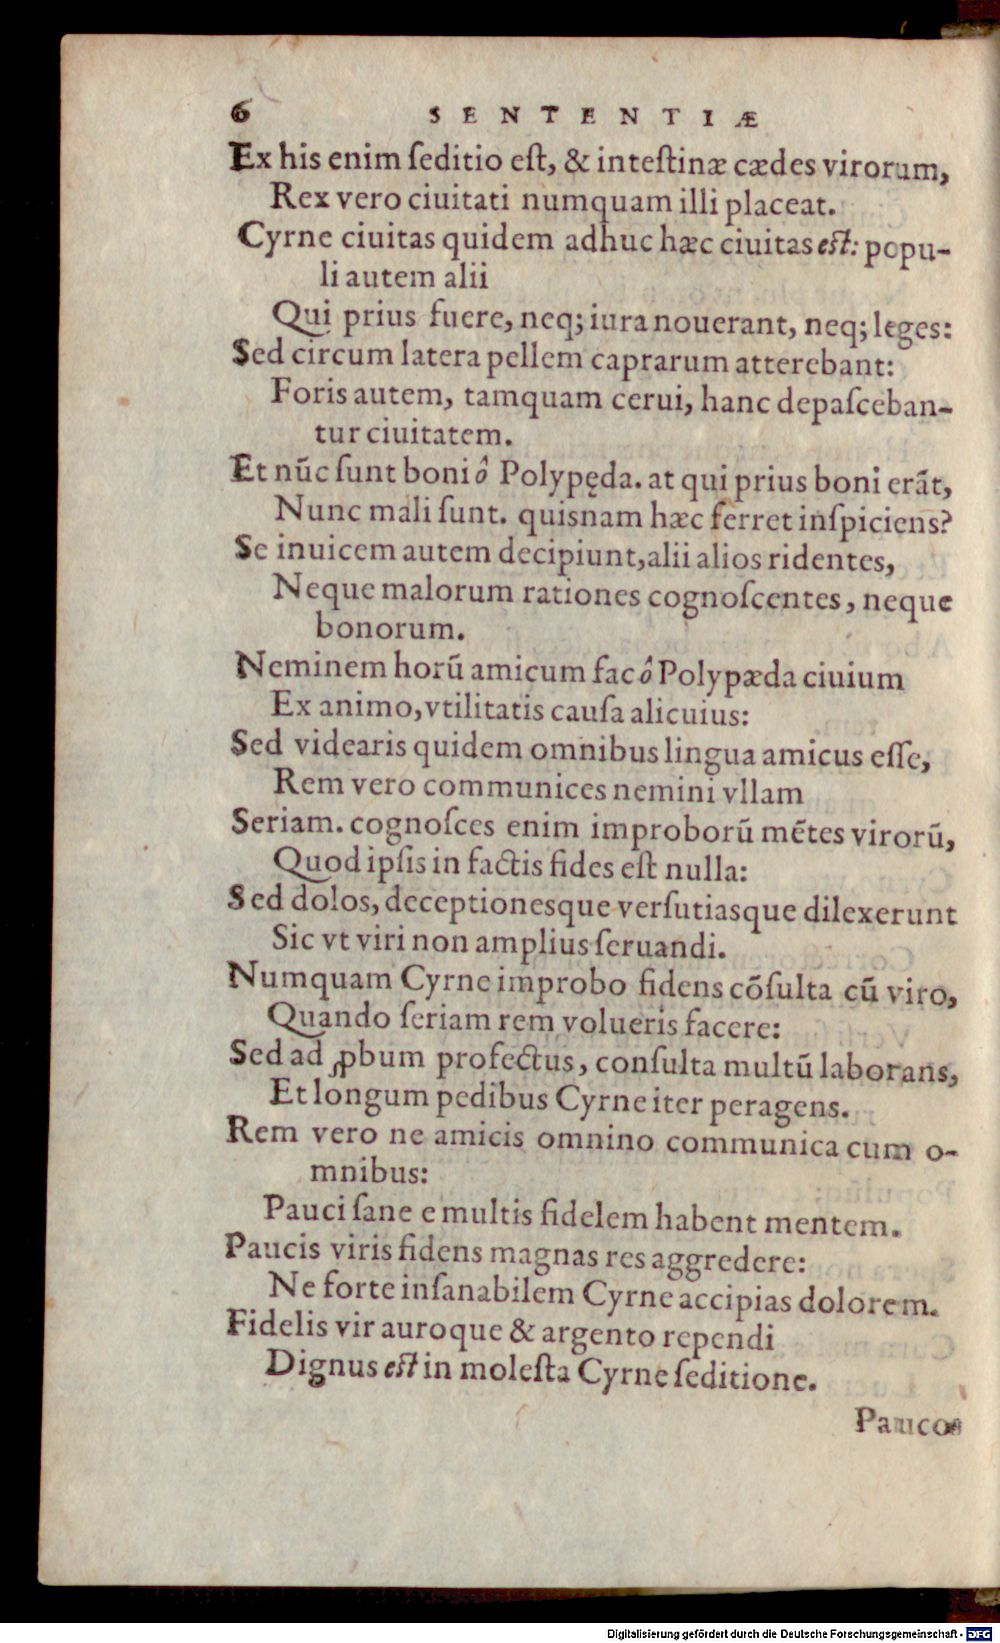 6 SENTENTIÆ
Ex his enim ſeditio eſt, & inteſtinæ cædes virorum,
Rex vero ciuitati numquam illi placeat.
Cyrne ciuitas quidem adhuc hæc ciuitas eſt: popu-
li autem alii
Qui prius fuere, neq; iura nouerant, neq; leges:
Sed circum latera pellem caprarum atterebant:
Foris autem, tamquam cerui, hanc depaſceban-
tur ciuitatem.
Et nũc ſunt boni ô Polypęda. at qui prius boni erãt,
Nunc mali ſunt. quisnam hæc ferret inſpiciens?
Se inuicem autem decipiunt, alii alios ridentes,
Neque malorum rationes cognoſcentes, neque
bonorum.
Neminem horũ amicum fac ô Polypæda ciuium
Ex animo, vtilitatis cauſa alicuius:
Sed videaris quidem omnibus lingua amicus eſſe,
Rem vero communices nemini vllam
Seriam. cognoſces enim improborũ mẽtes virorũ,
Quod ipſis in factis fides eſt nulla:
Sed dolos, deceptionesque verſutiasque dilexerunt
Sic vt viri non amplius ſeruandi.
Numquam Cyrne improbo fidens cõſulta cũ viro,
Quando ſeriam rem volueris facere:
Sed ad ꝓbum profectus, conſulta multũ laborans,
Et longum pedibus Cyrne iter peragens.
Rem vero ne amicis omnino communica cum o-
mnibus:
Pauci ſane e multis fidelem habent mentem.
Paucis viris fidens magnas res aggredere:
Ne forte inſanabilem Cyrne accipias dolorem.
Fidelis vir auroque & argento rependi
Dignus eſt in moleſta Cyrne ſeditione.
Paucos
Digitalisierung gefördert durch die Deutsche Forschungsgemeinschaft - DFG